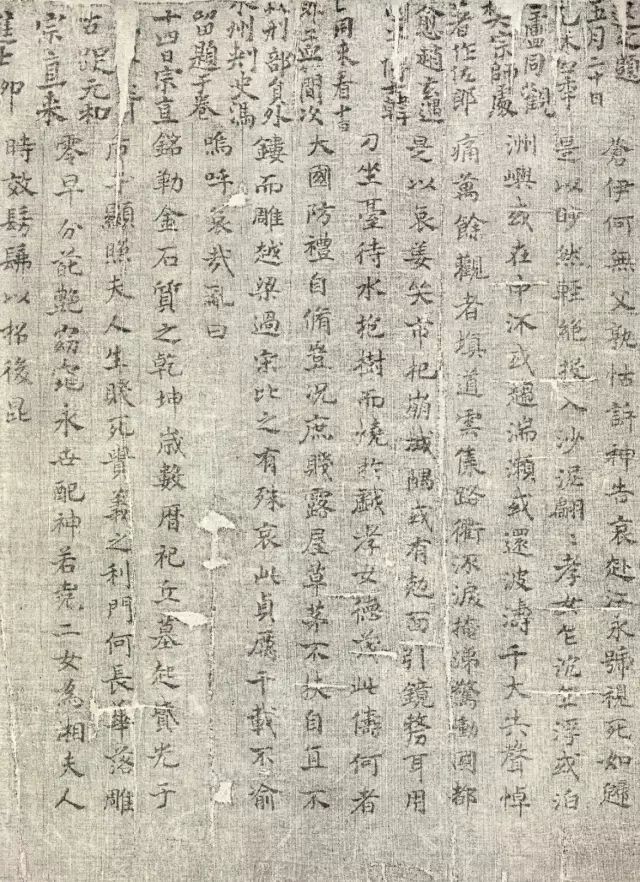 題
五月二十日
盧同觀
樊宗師處
著作佐郎
愈趙玄遇
韓
同來看十
間次
刑部員外
州刺史馮
留題于卷
十四日宗直
元和
宗直來
進士
蒼伊何無父孰怙訴神告哀赴江永號視死如歸
是以眇然輕絕投入沙泥翩〻孝女乍沉乍浮或泊
洲嶼或在中流或趨湍瀨或還波濤千夫共聲悼
痛萬餘觀者填道雲集路衢流淚掩涕驚慟國都
是以哀姜哭市杞崩城隅或有剋面引鏡剺耳用
刀坐臺待水抱樹而燒於戲孝女德茂此儔何者
大國防禮自脩豈況庶賤露屋草茅不扶自直不
鏤而雕越梁過宋比之有殊哀此貞厲千載不渝
嗚呼哀哉亂曰
銘勒金石質之乾坤歲數曆祀丘墓起墳光于
后土顯照夫人生賤死貴義之利門何長華落雕
零早分葩艷窈窕永世配神若堯二女為湘夫人
時效髣髴以招後昆